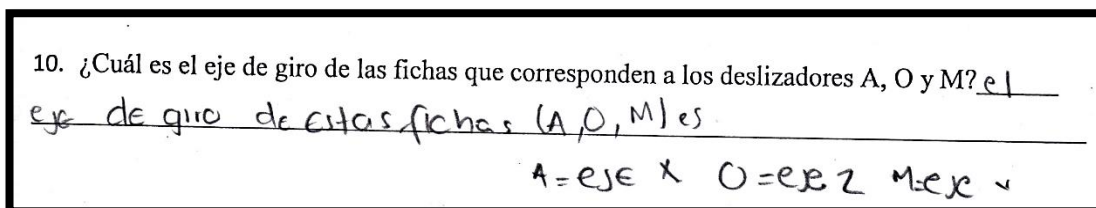 10. ¿Cuál es el eje de giro de las fichas que corresponden a los deslizadores A, O y M? el
eje de giro de estas fichas (A, O, M) es
A = eje x O = eje z M = eje